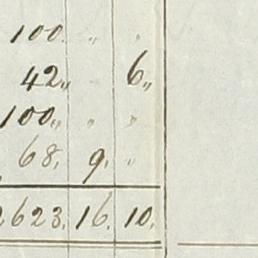 100. " "
42 " 6 "
100 " " "
68. 9. "
2623. 16. 10.